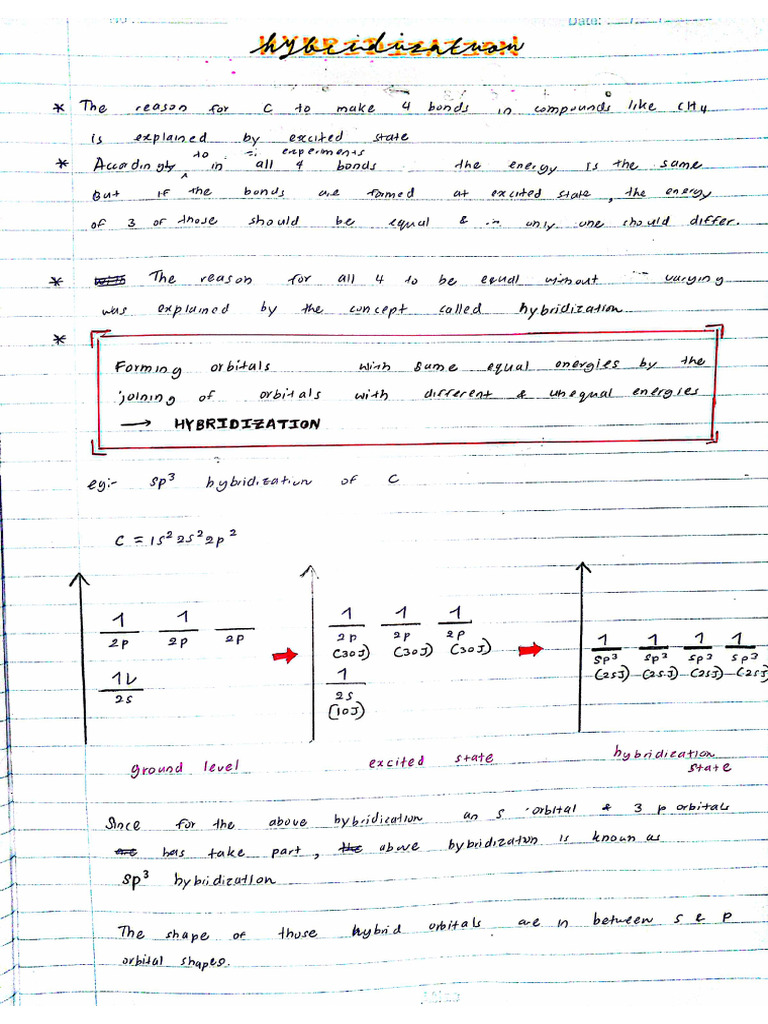 No :
Date:
hybridization
* The reason for C to make 4 bonds in compounds like CH4
is explained by excited state
* Accordingly to experiments in all 4 bonds the energy is the same
But if the bonds are formed at excited state, the energy
of 3 of those should be equal & only one should differ.
* The reason for all 4 to be equal without varying
was explained by the concept called hybridization.
*
Forming orbitals with same equal energies by the
joining of orbitals with different & unequal energies
→ HYBRIDIZATION
eg:- sp³ hybridization of C
C = 1s² 2s² 2p²
1 1
2p 2p 2p
1L
2s
1 1 1
2p 2p 2p
(30J) (30J) (30J)
1
2s
(10J)
1 1 1 1
sp³ sp³ sp³ sp³
(25J) (25J) (25J) (25J)
ground level
excited state
hybridization
state
Since for the above hybridization an s orbital & 3 p orbitals
has take part, above hybridization is known as
sp³ hybridization
The shape of those hybrid orbitals are in between s & p
orbital shapes.